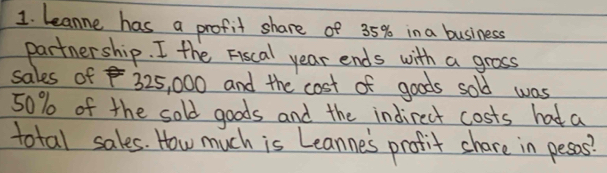 1. Leanne has a profit share of 35% in a business
partnership. I the Fiscal year ends with a gross
sales of ₱ 325,000 and the cost of goods sold was
50% of the sold goods and the indirect costs had a
total sales. How much is Leanne's profit share in pesos?